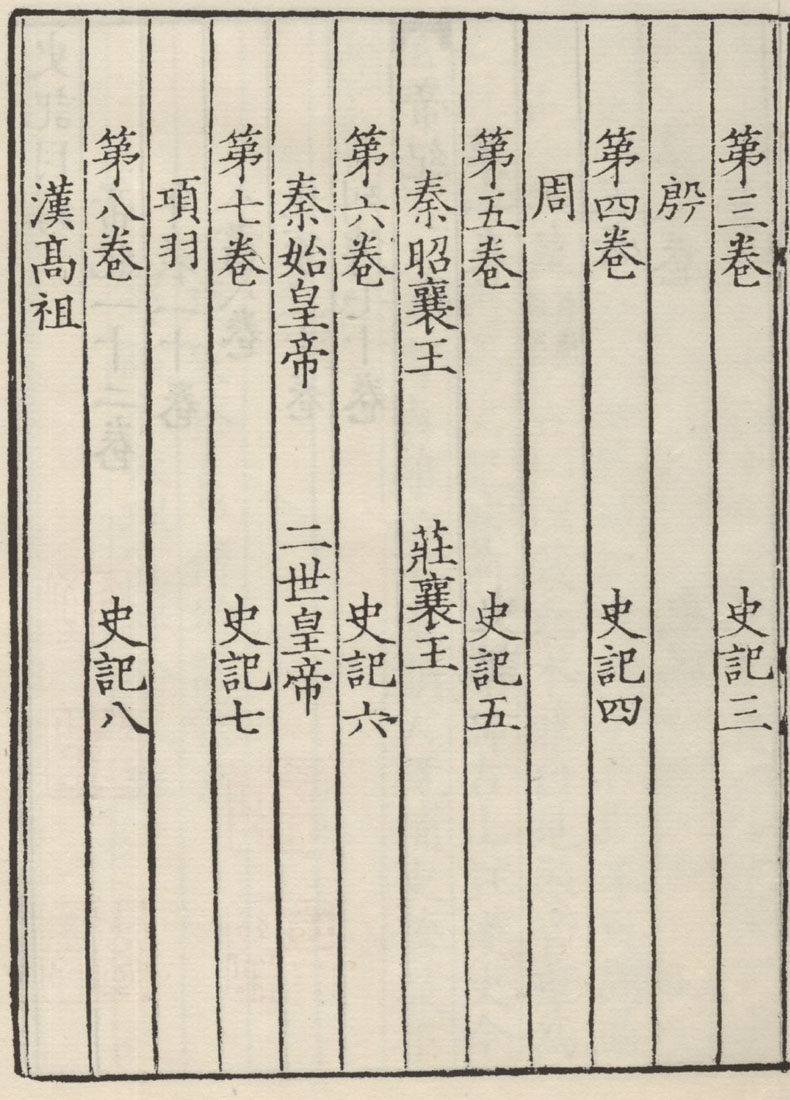 第三卷 史記三
殷
第四卷 史記四
周
第五卷 史記五
秦昭襄王 莊襄王
第六卷 史記六
秦始皇帝 二世皇帝
第七卷 史記七
項羽
第八卷 史記八
漢髙祖